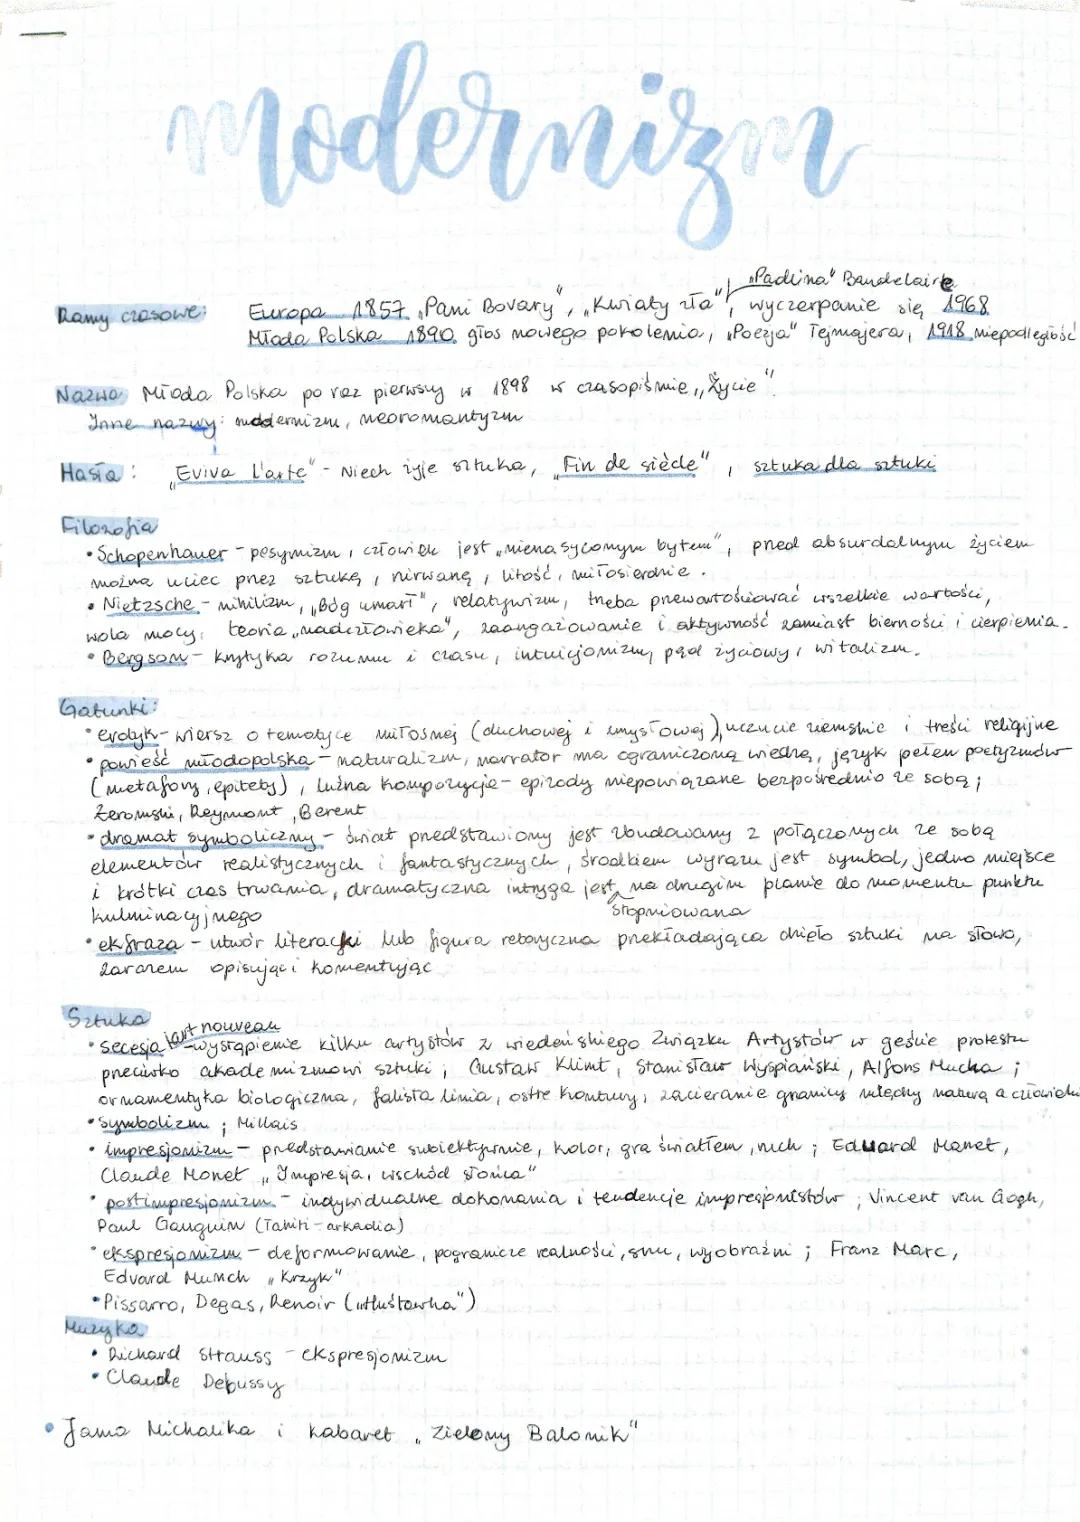 modernizm
„Padlina" Baudelaire
Ramy czasowe: Europa 1857 „Pani Bovary", „Kwiaty zła", wyczerpanie się 1968
Młoda Polska 1890 głos nowego pokolenia, „Poezja" Tejmajera, 1918 niepodległość
Nazwa Młoda Polska po raz pierwszy w 1898 w czasopiśmie „Życie"
Inne nazwy: modernizm, neoromantyzm
Hasła: „Eviva l'arte" - Niech żyje sztuka, „Fin de siècle", sztuka dla sztuki
Filozofia
• Schopenhauer - pesymizm, człowiek jest „nienasyconym bytem", przed absurdalnym życiem
można uciec przez sztukę, nirwanę, litość, miłosierdzie.
• Nietzsche - nihilizm, „Bóg umarł", relatywizm, trzeba przewartościować wszelkie wartości,
wola mocy, teoria „nadczłowieka", zaangażowanie i aktywność zamiast bierności i cierpienia.
• Bergson - krytyka rozumu i czasu, intuicjonizm, pęd życiowy, witalizm.
Gatunki:
• erotyk - wiersz o tematyce miłosnej (duchowej i zmysłowej), uczucie ziemskie i treści religijne
• powieść młodopolska - naturalizm, narrator ma ograniczoną wiedzę, język pełen poetyzmów
(metafory, epitety), luźna kompozycja - epizody niepowiązane bezpośrednio ze sobą;
Żeromski, Reymont, Berent
• dramat symboliczny - świat przedstawiony jest zbudowany z połączonych ze sobą
elementów realistycznych i fantastycznych, środkiem wyrazu jest symbol, jedno miejsce
i krótki czas trwania, dramatyczna intryga jest na drugim planie do momentu punktu
kulminacyjnego stopniowana
• ekfraza - utwór literacki lub figura retoryczna przekładająca dzieło sztuki na słowo,
zarazem opisując i komentując
Sztuka
• secesja / art nouveau - wystąpienie kilku artystów z wiedeńskiego Związku Artystów w geście protestu
przeciwko akademizmowi sztuki; Gustaw Klimt, Stanisław Wyspiański, Alfons Mucha;
ornamentyka biologiczna, falista linia, ostre kontury, zacieranie granicy między naturą a człowiek
• symbolizm; Millais
• impresjonizm - przedstawianie subiektywnie, kolor, gra światłem, ruch; Eduard Manet,
Claude Monet „Impresja, wschód słońca"
• postimpresjonizm - indywidualne dokonania i tendencje impresjonistów; Vincent van Gogh,
Paul Gauguin (Tahiti - arkadia)
• ekspresjonizm - deformowanie, pogranicze realności, snu, wyobraźni; Franz Marc,
Edvard Munch „Krzyk"
• Pissarro, Degas, Renoir („Huśtawka")
Muzyka
• Richard Strauss - ekspresjonizm
• Claude Debussy
• Jama Michalika i kabaret „Zielony Balonik"